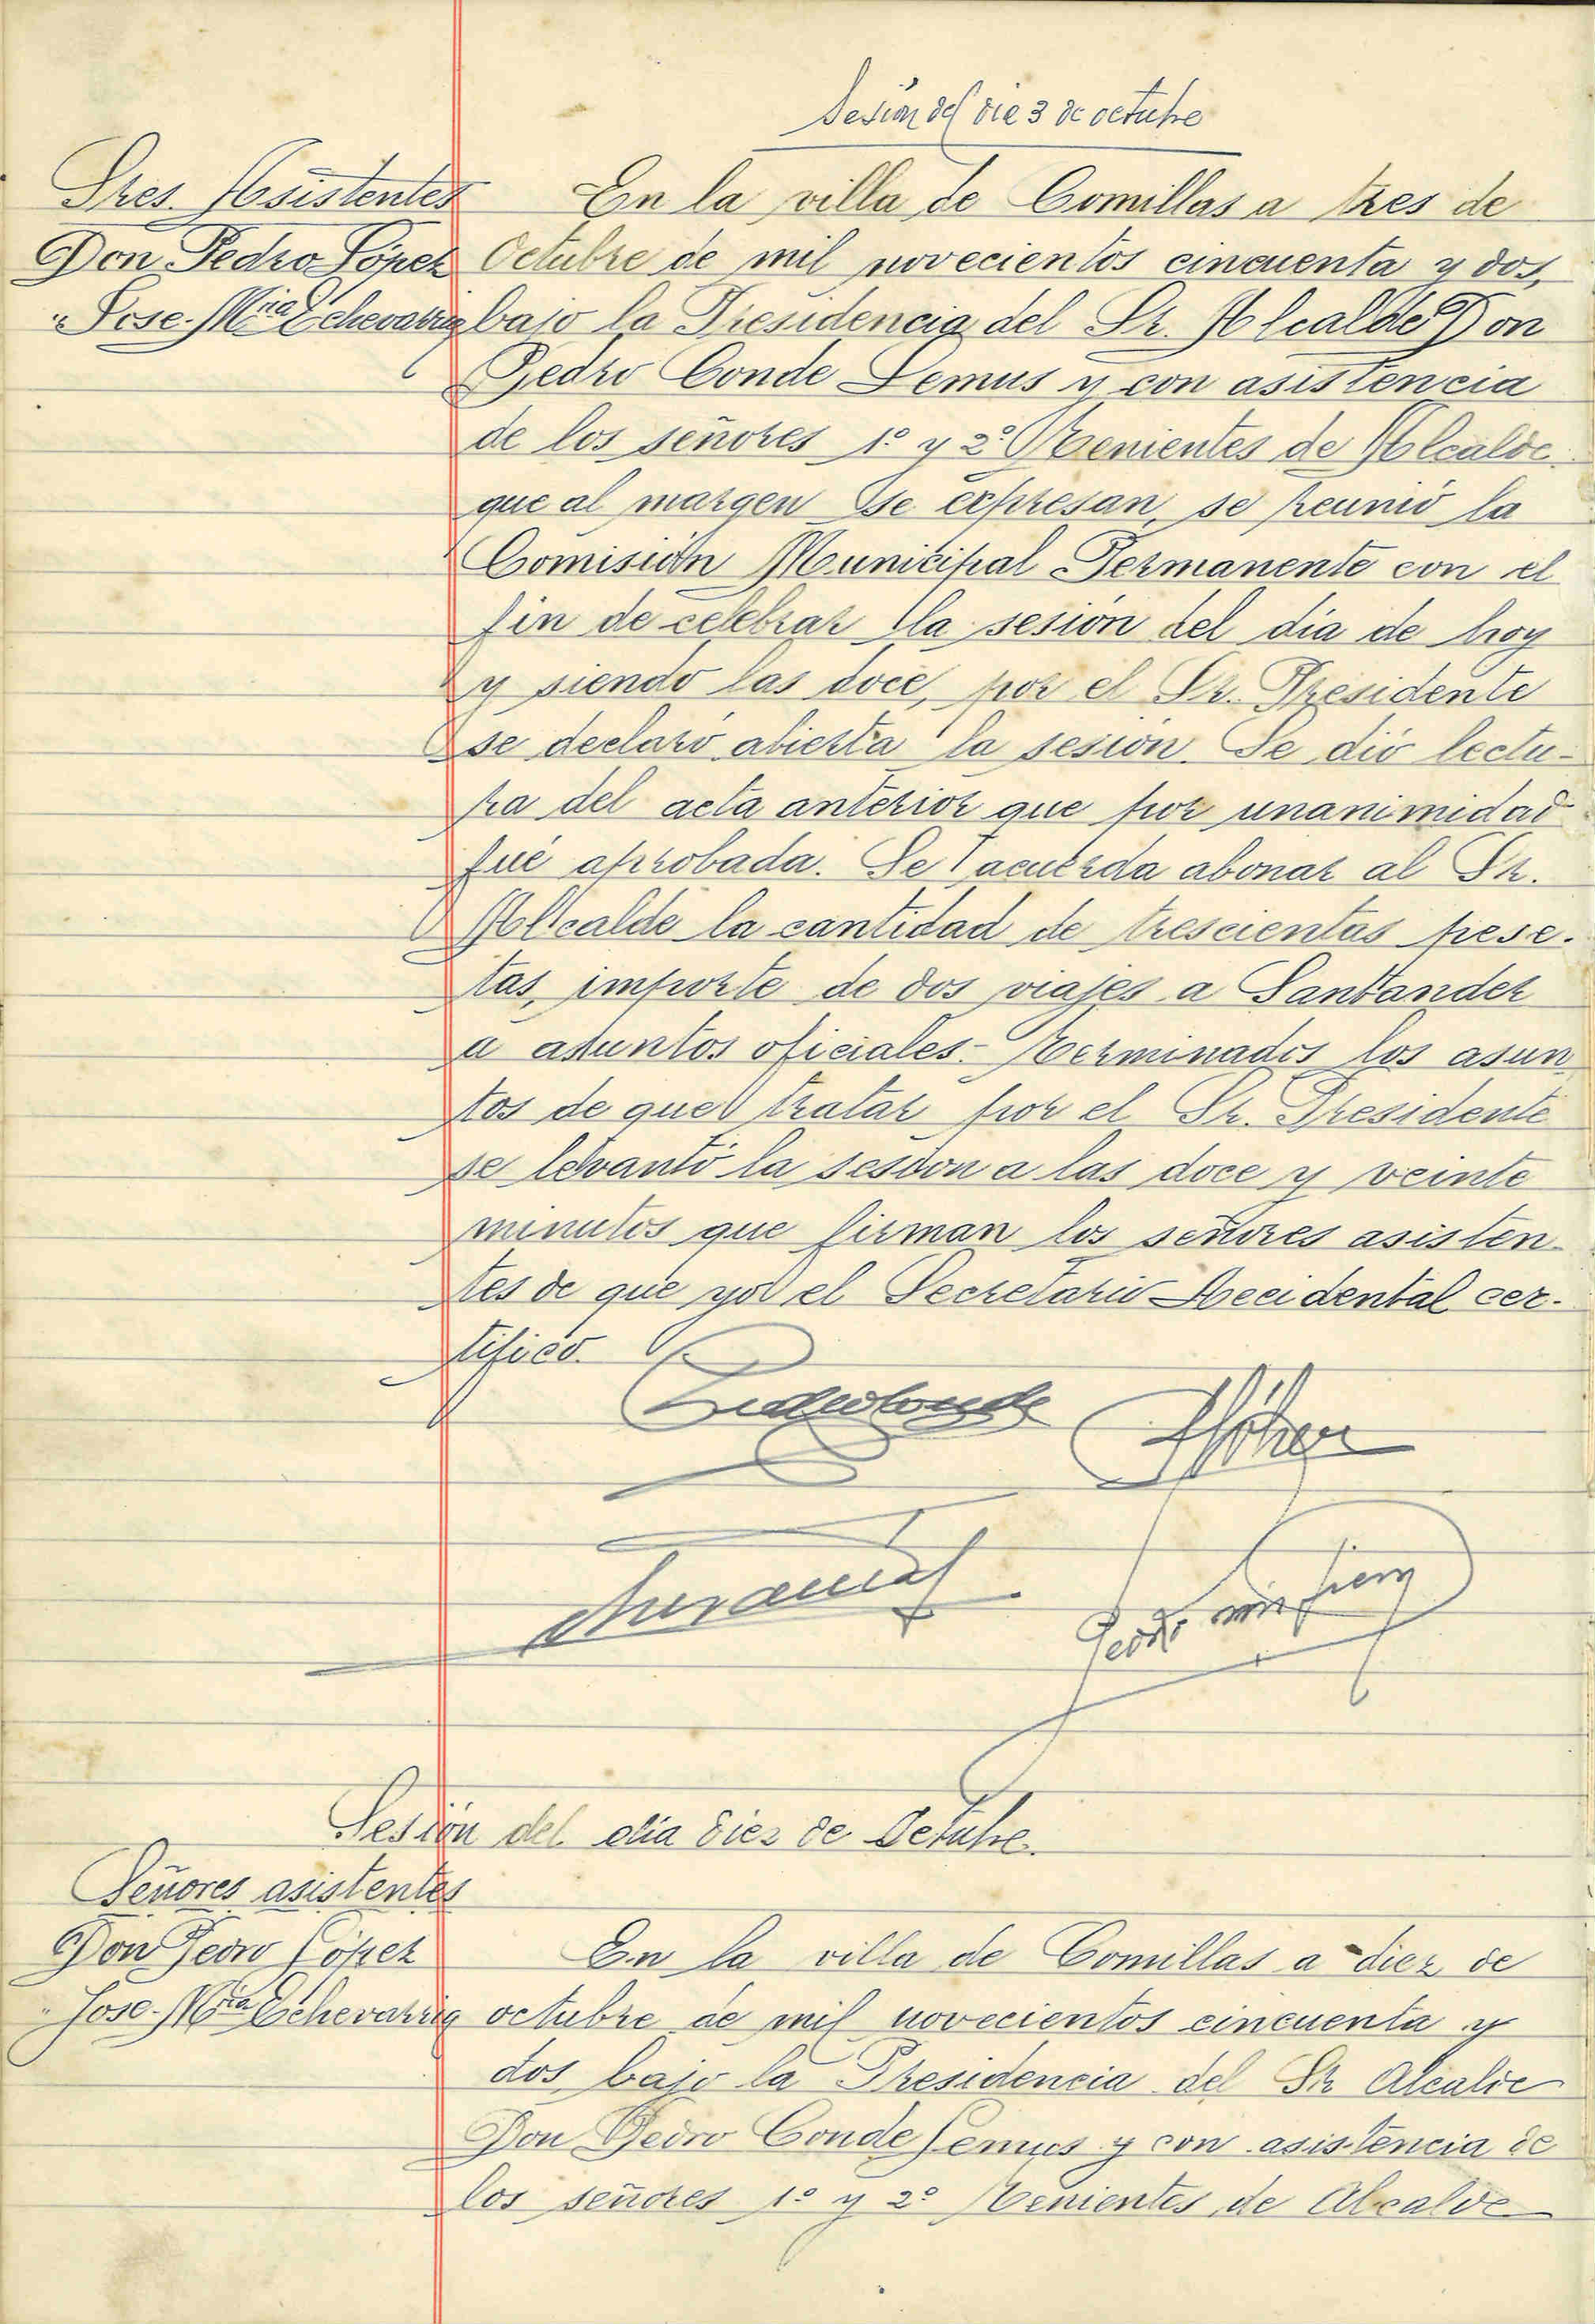 Sesión del día 3 de octubre
Sres. Asistentes
Don Pedro López
" Jose-Mría Echevarria
En la villa de Comillas a tres de
Octubre de mil novecientos cincuenta y dos,
bajo la Presidencia del Sr. Alcalde Don
Pedro Conde Lemus y con asistencia
de los señores 1º y 2º Tenientes de Alcalde
que al margen se expresan, se reunió la
Comisión Municipal Permanente con el
fin de celebrar la sesión del día de hoy
y siendo las doce, por el Sr. Presidente
se declaró abierta la sesión. Se dió lectu-
ra del acta anterior que por unanimidad
fué aprobada. Se acuerda abonar al Sr.
Alcalde la cantidad de trescientas pese-
tas, importe de dos viajes a Santander
a asuntos oficiales.- Terminados los asun
tos de que tratar por el Sr. Presidente
se levantó la sesión a las doce y veinte
minutos que firman los señores asisten-
tes de que yo el Secretario Accidental cer-
tifico.
Pedro Conde
PLópez
Sesión del día diez de Octubre.
Señores asistentes
Don Pedro López
" Jose-Mría Echevarria
En la villa de Comillas a diez de
octubre de mil novecientos cincuenta y
dos, bajo la Presidencia del Sr Alcalde
Don Pedro Conde Lemus y con asistencia de
los señores 1º y 2º Tenientes de Alcalde